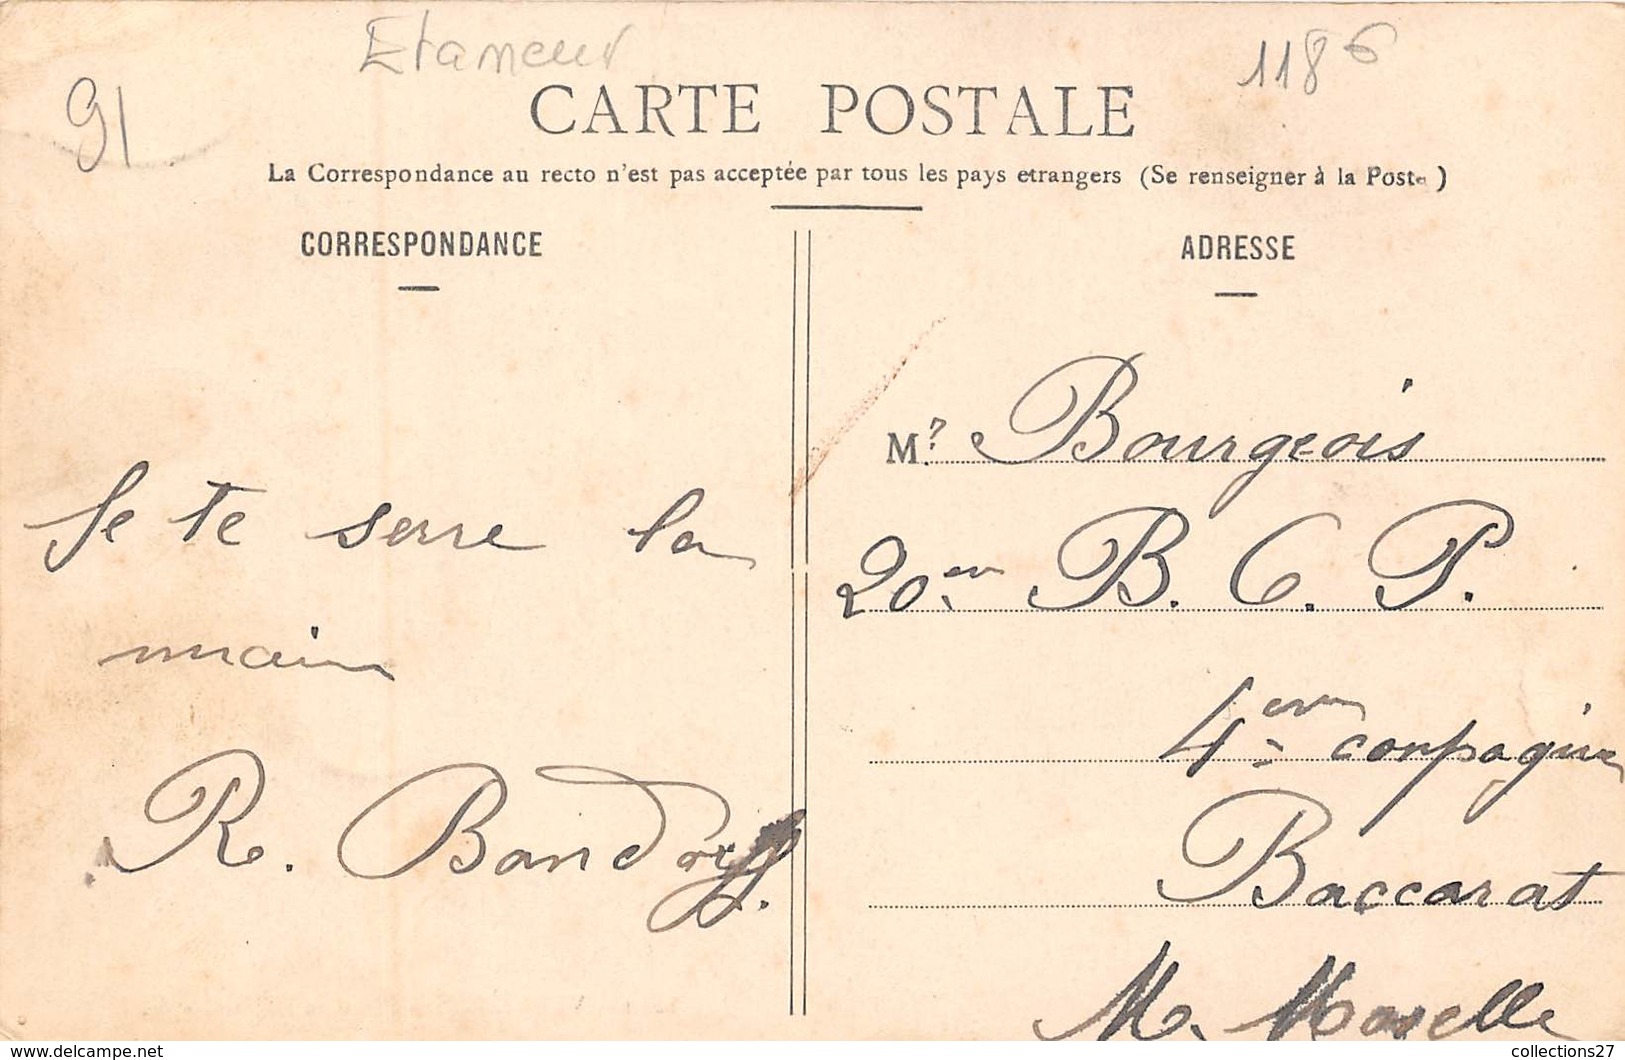 Etameur
1186
91
CARTE POSTALE
La Correspondance au recto n'est pas acceptée par tous les pays etrangers (Se renseigner à la Poste)
CORRESPONDANCE
Je te serre la
main
R.
ADRESSE
Mr Bourgeois
20em B. C. P.
4em compagnie
Baccarat
M. Moselle
collections27